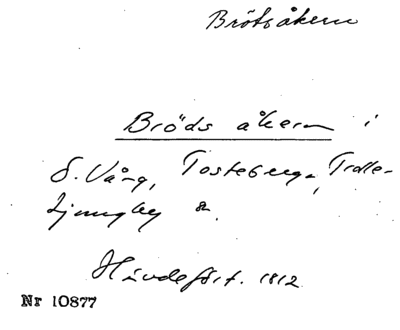 Brötsåkern
Bröds åkern i
S. Vång, Tosteberga, Trolle-
Ljungby &
Hävdefört. 1812
Nr 10877